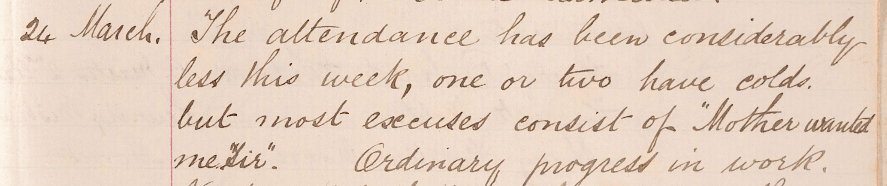 24 March. The attendance has been considerably
less this week, one or two have colds.
but most excuses consist of "Mother wanted
me Sir". Ordinary progress in work.